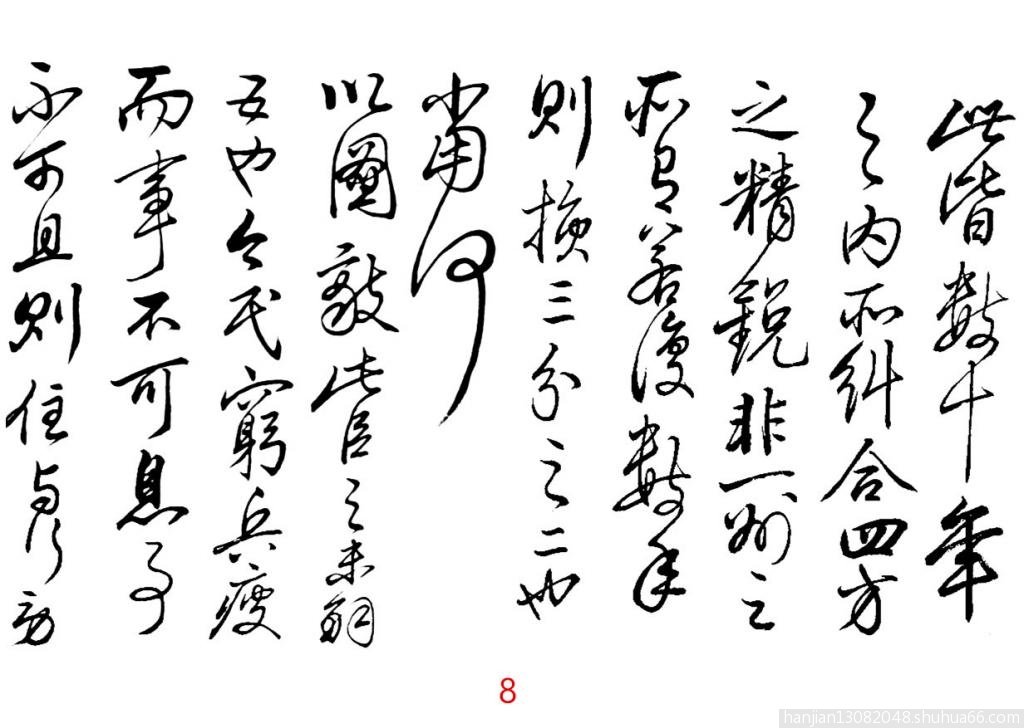 此皆數十年
之內所糾合四方
之精銳非一州之
所有若復數年
則損三分之二也
當何
以圖敵此臣之未解
五也今民窮兵疲
而事不可息事
不可且則住與行勞
8
hanjian13082048.shuhua66.com